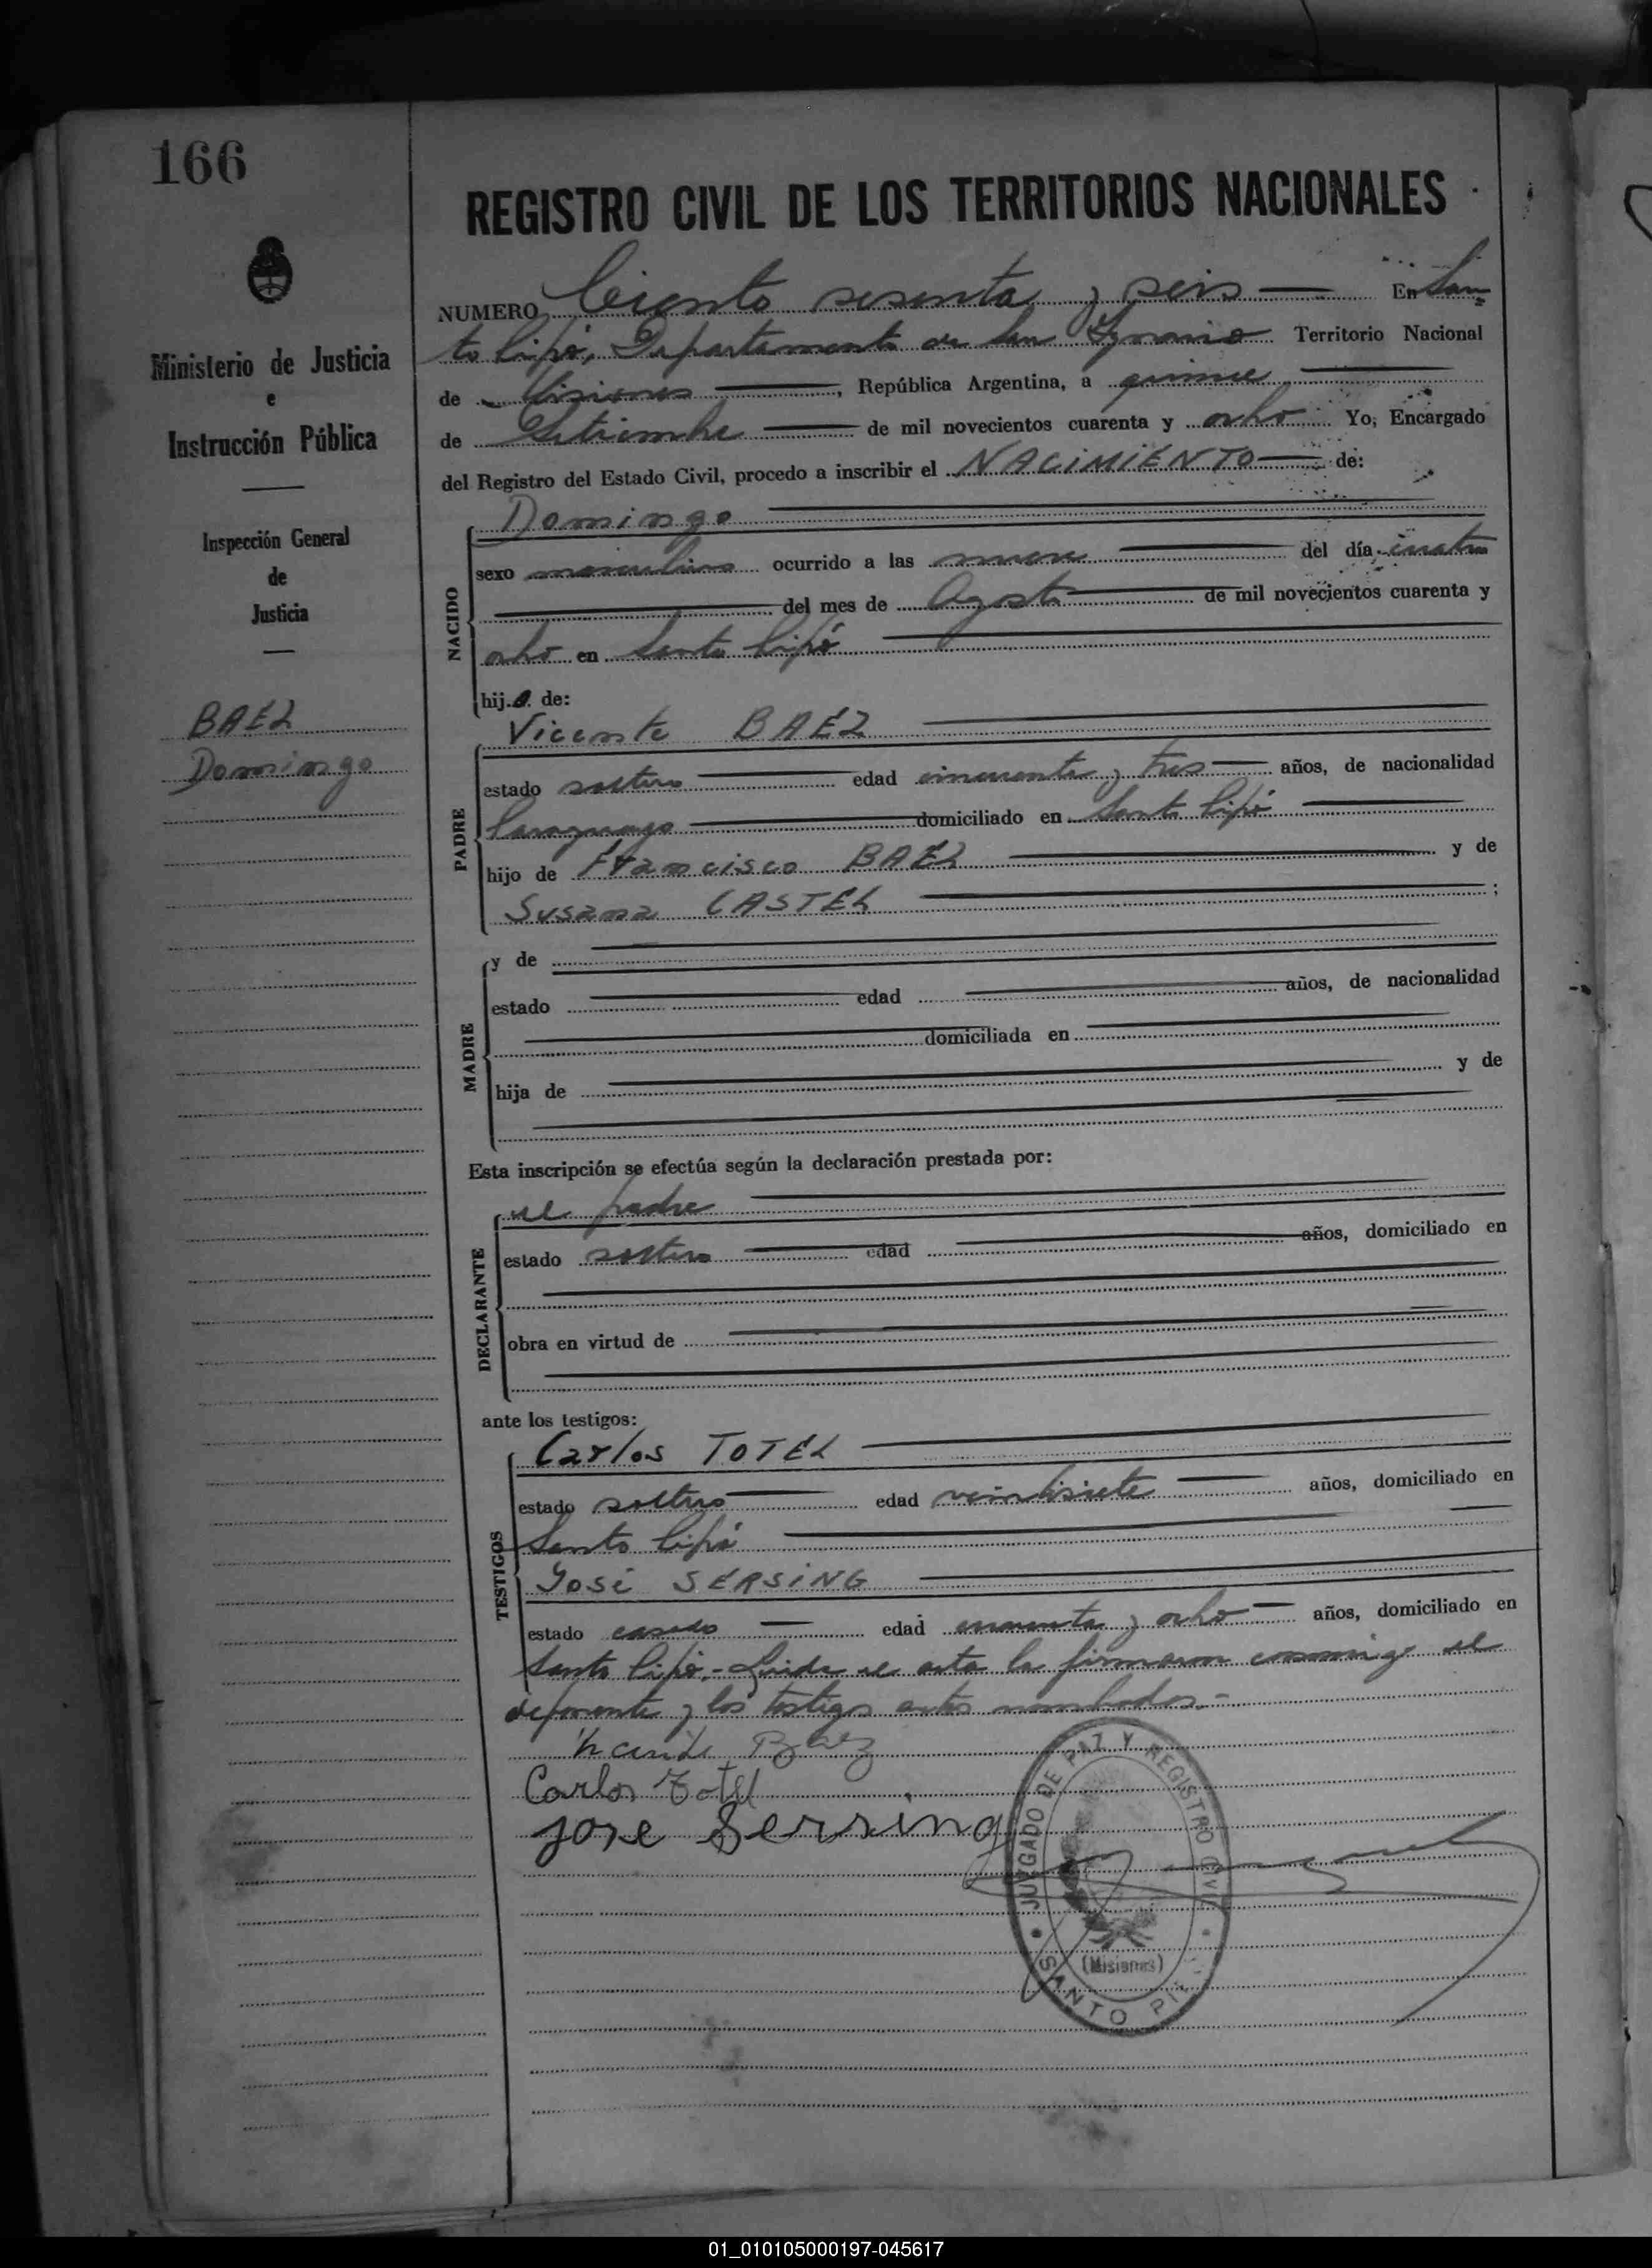 166
REGISTRO CIVIL DE LOS TERRITORIOS NACIONALES
Ministerio de Justicia
e
Instrucción Pública
Inspección General
de
Justicia
BAÉZ
Domingo
NUMERO Ciento sesenta y seis En San
to Pipó, Departamento de San Ignacio Territorio Nacional
de Misiones, República Argentina, a quince
de Setiembre de mil novecientos cuarenta y ocho Yo, Encargado
del Registro del Estado Civil, procedo a inscribir el NACIMIENTO de:
NACIDO
Domingo
sexo masculino ocurrido a las nueve del día cuatro
del mes de Agosto de mil novecientos cuarenta y
ocho en Santo Pipó
hijo de:
PADRE
Vicente BAÉZ
estado soltero edad cincuenta y tres años, de nacionalidad
Paraguayo domiciliado en Santo Pipó
hijo de Francisco BAÉZ y de
Susana CASTEL ;
MADRE
y de
estado edad años, de nacionalidad
domiciliada en
hija de y de
Esta inscripción se efectúa según la declaración prestada por:
DECLARANTE
el padre
estado soltero edad años, domiciliado en
obra en virtud de
ante los testigos:
TESTIGOS
Carlos TOTEL
estado soltero edad veintisiete años, domiciliado en
Santo Pipó
José SERSING
estado casado edad cuarenta y ocho años, domiciliado en
Santo Pipó.- Leida el acta la firmaron conmigo el
deponente y los testigos antes nombrados.-
Vicente Baez
Carlos Totel
Jose Sersing
JUZGADO DE PAZ Y REGISTRO CIVIL
(Misiones)
SANTO PIPÓ
01_010105000197-045617